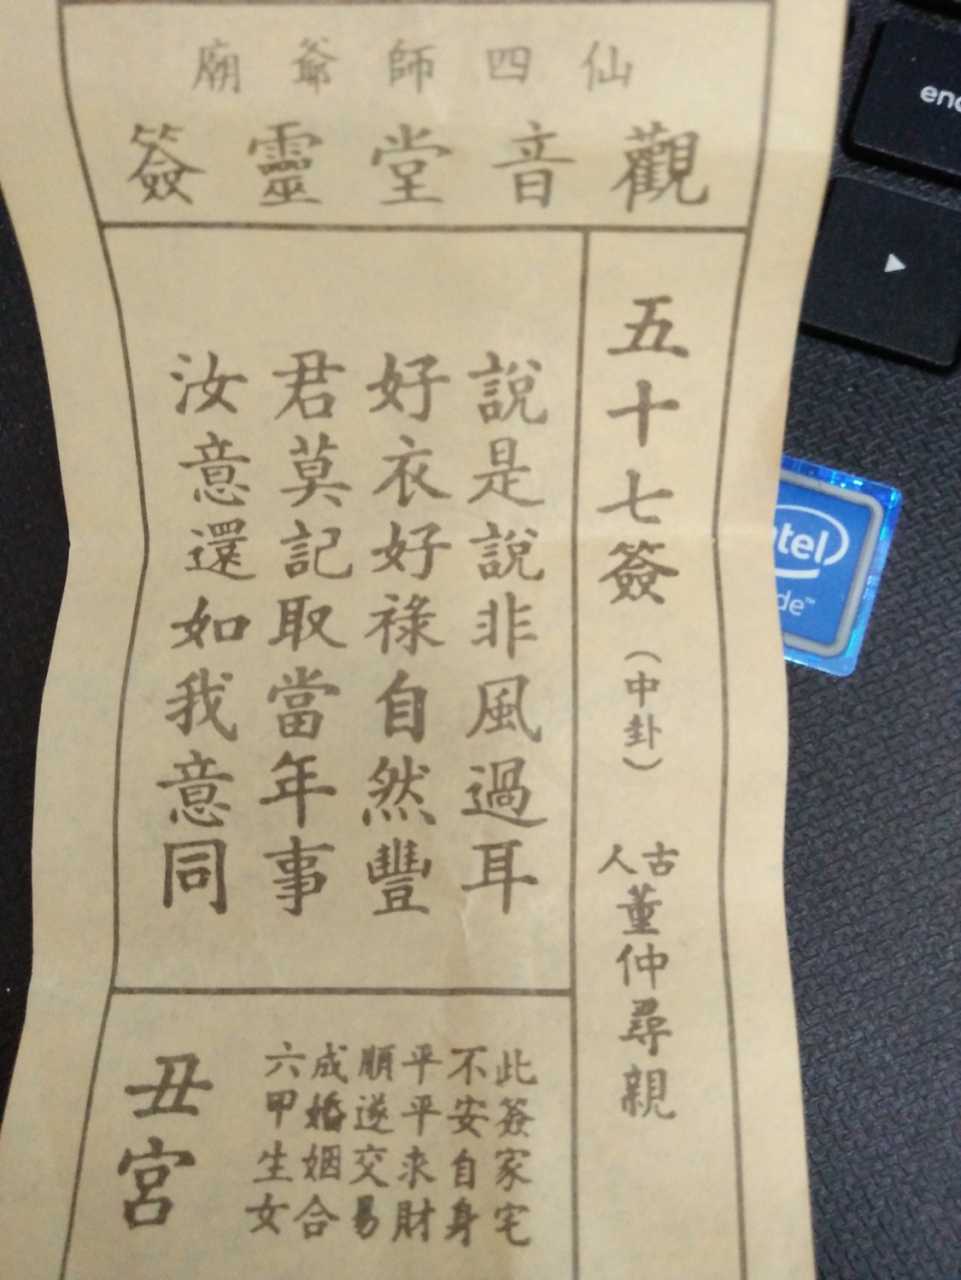 仙四師爺廟
觀音堂靈簽
五十七簽（中卦）
古人董仲尋親
說是說非風過耳
好衣好祿自然豐
君莫記取當年事
汝意還如我意同
此簽家宅
不安自身
平平求財
順遂交易
成婚姻合
六甲生女
丑宮
end
▶
intel